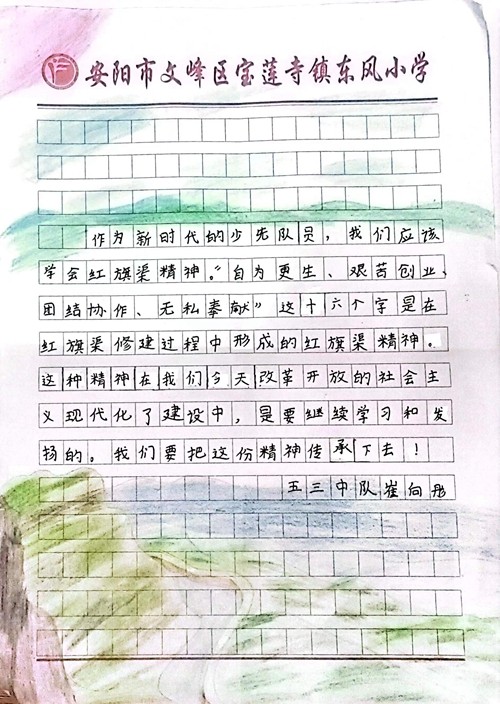 安阳市文峰区宝莲寺镇东风小学
作为新时代的少先队员，我们应该
学会红旗渠精神。“自为更生、艰苦创业、
团结协作、无私奉献”这十六个字是在
红旗渠修建过程中形成的红旗渠精神。
这种精神在我们今天改革开放的社会主
义现代化了建设中，是要继续学习和发
扬的。我们要把这份精神传承下去！
五三中队崔向彤